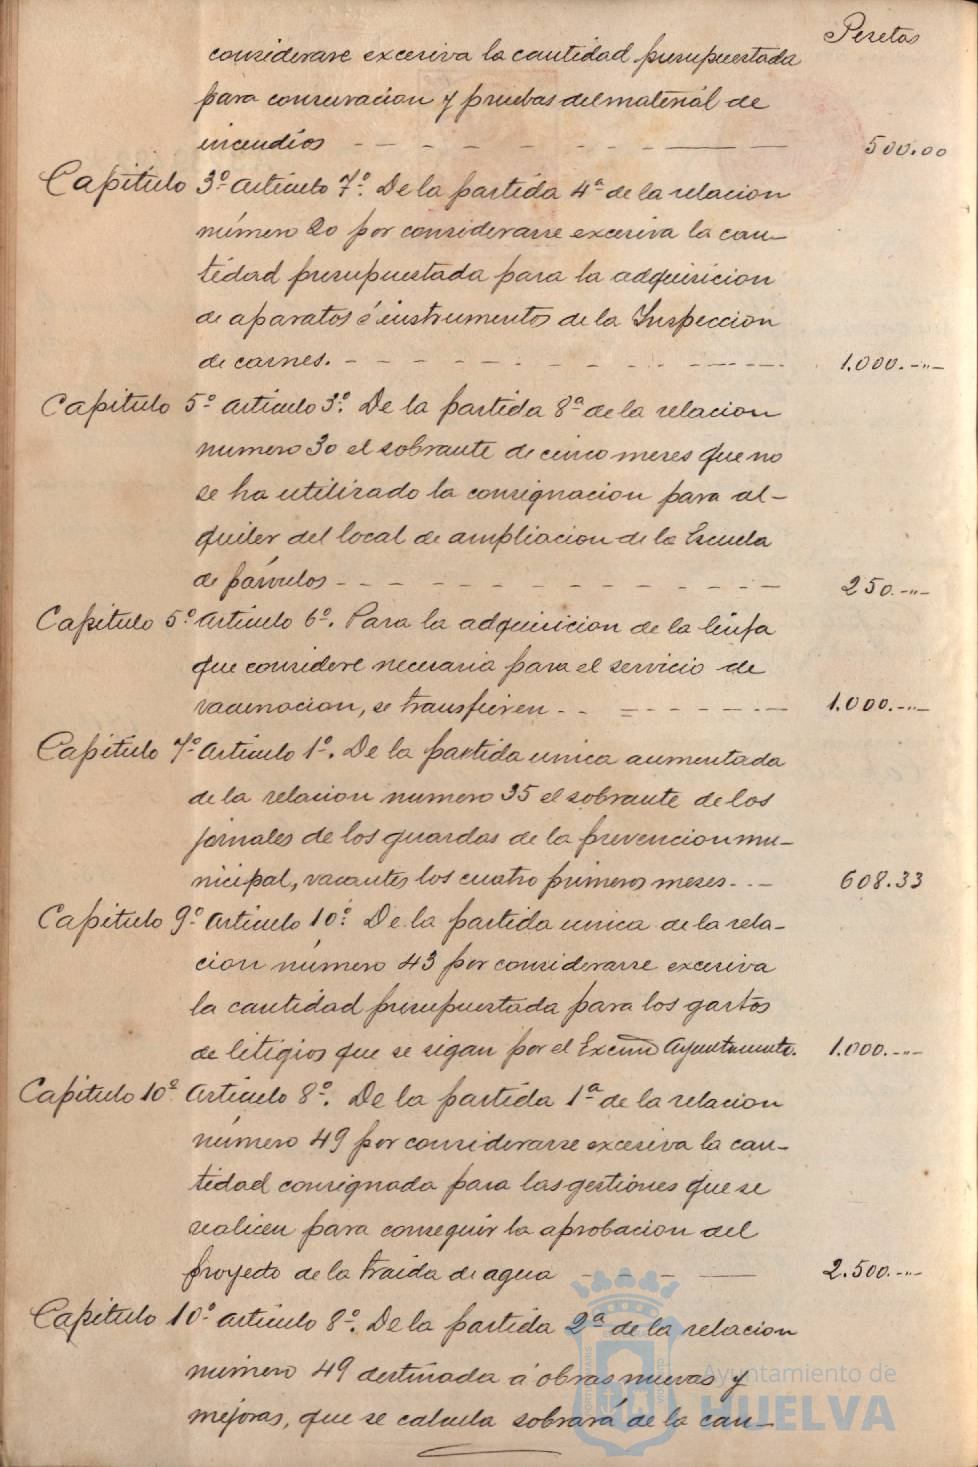 Pesetas
considerarse excesiva la cantidad presupuestada
para conservacion y pruebas del material de
incendios - - - - - - - - 500.00
Capitulo 3º artículo 7º. De la partida 4ª de la relacion
número 20 por considerarse excesiva la can-
tidad presupuestada para la adquisicion
de aparatos é instrumentos de la Inspeccion
de carnes. - - - - - - - - 1.000.-"-
Capitulo 5º articulo 3º. De la partida 8ª de la relacion
numero 30 el sobrante de cinco meses que no
se ha utilizado la consignacion para al-
quiler del local de ampliacion de la Escuela
de párvulos - - - - - - - - 250.-"-
Capitulo 5º artículo 6º. Para la adquisicion de la linfa
que considere necesaria para el servicio de
vacunacion, se transfieren - - = - - - - - 1.000.-"-
Capitulo 7º artículo 1º. De la partida unica aumentada
de la relacion numero 35 el sobrante de los
jornales de los guardas de la prevencion mu-
nicipal, vacantes los cuatro primeros meses - - - 608.33
Capitulo 9º artículo 10º. De la partida unica de la rela-
cion número 43 por considerarse excesiva
la cantidad presupuestada para los gastos
de litigios que se sigan por el Excmo Ayuntamiento. 1.000.-"-
Capitulo 10º articulo 8º. De la partida 1ª de la relacion
número 49 por considerarse excesiva la can-
tidad consignada para las gestiones que se
realicen para conseguir la aprobacion del
proyecto de la traida de agua - - - - 2.500.-"-
Capitulo 10º articulo 8º. De la partida 2ª de la relacion
número 49 destinada á obras nuevas y
mejoras, que se calcula sobrará de la can-
Ayuntamiento de
HUELVA